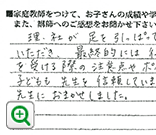 ■家庭教師をつけて、お子さんの成績や学
また、厨局へのご感想をお聞かせ下さい
理・社が足を引っぱって
いただき、最終的には
を受ける際の注意点やポ
子どもも先生を信頼していま
先生におまかせしました。